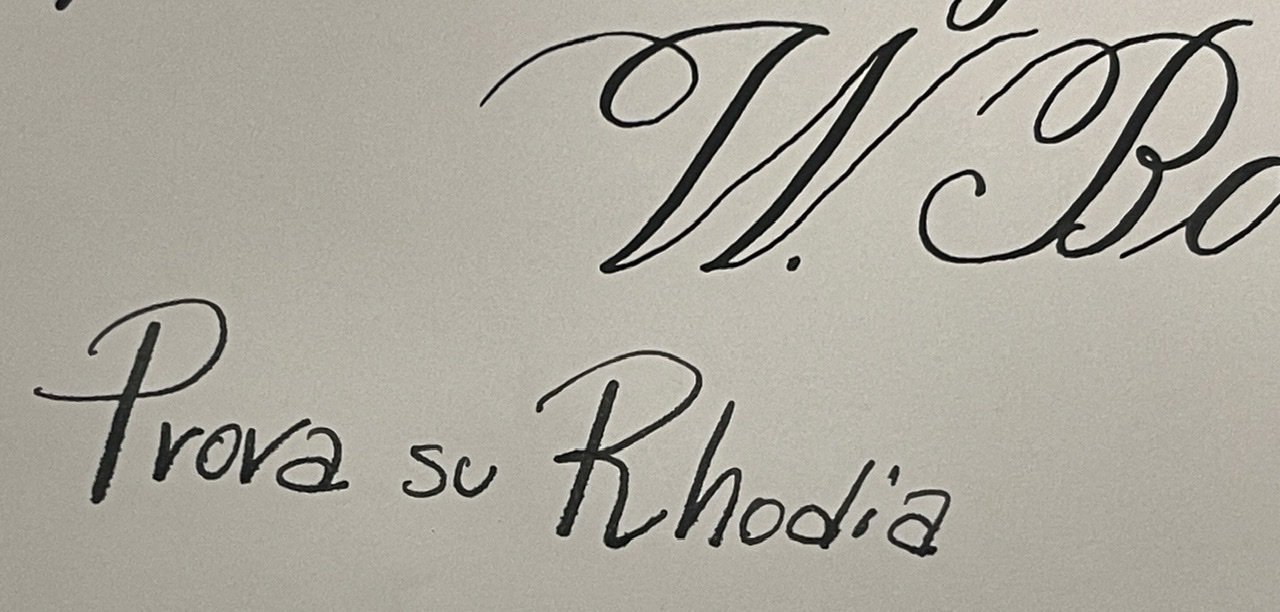 W. Bo
Prova su Rhodia